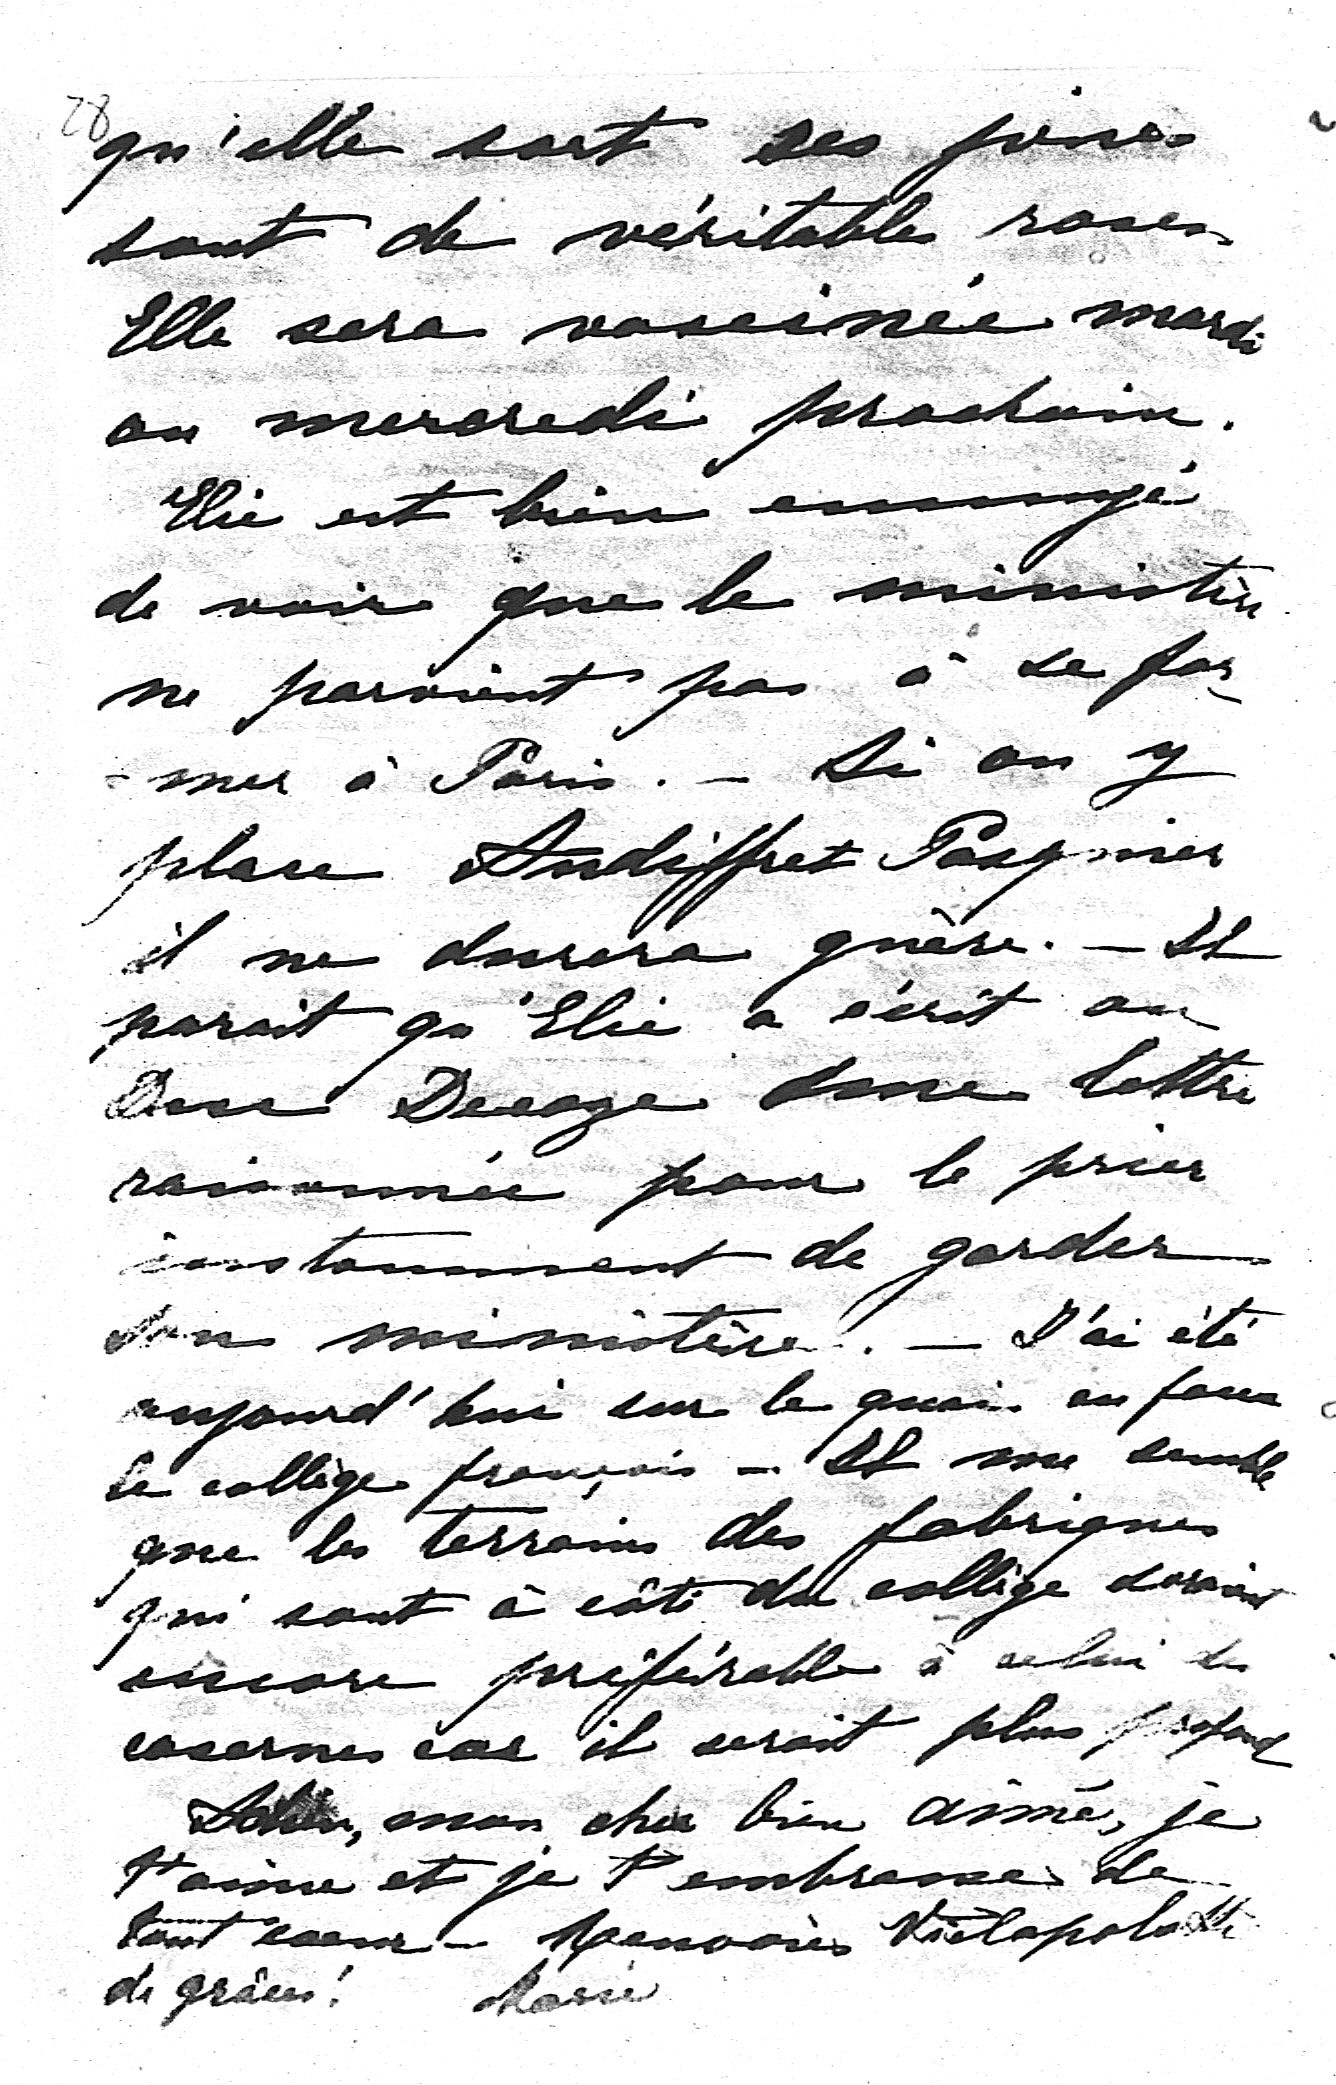 78
qu'elle sort ses joues
sont de véritable roses
Elle sera vascinée mardi
ou mercredi prochain.
Elie est bien ennuyé
de voir que le ministère
ne parvient pas à se for
-mer à Paris. – Si on y
place Audiffret Pasquier
il ne durera guère. – Il
parait qu'Elie a écrit au
Duc Decaze une lettre
raisonnée pour le prier
instamment de garder
son ministère. – J'ai été
aujourd'hui sur le quai en face
le collège français – Il me semble
que les terrains des fabriques
qui sont à côté du collège seraient
encore préférable à celui des
casernes car il serait plus profond
Adieu, mon cher bien aimé, je
t'aime et je t'embrasse de
tout coeur – Renvoies
de grâces! Marie